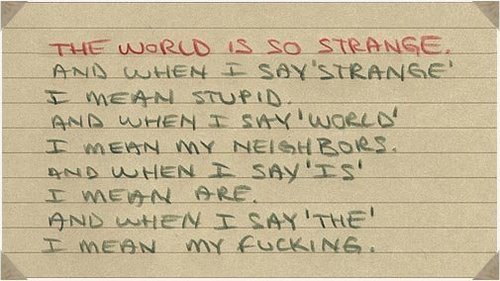 THE WORLD IS SO STRANGE.
AND WHEN I SAY 'STRANGE'
I MEAN STUPID.
AND WHEN I SAY 'WORLD'
I MEAN MY NEIGHBORS.
AND WHEN I SAY 'IS'
I MEAN ARE.
AND WHEN I SAY 'THE'
I MEAN MY FUCKING.